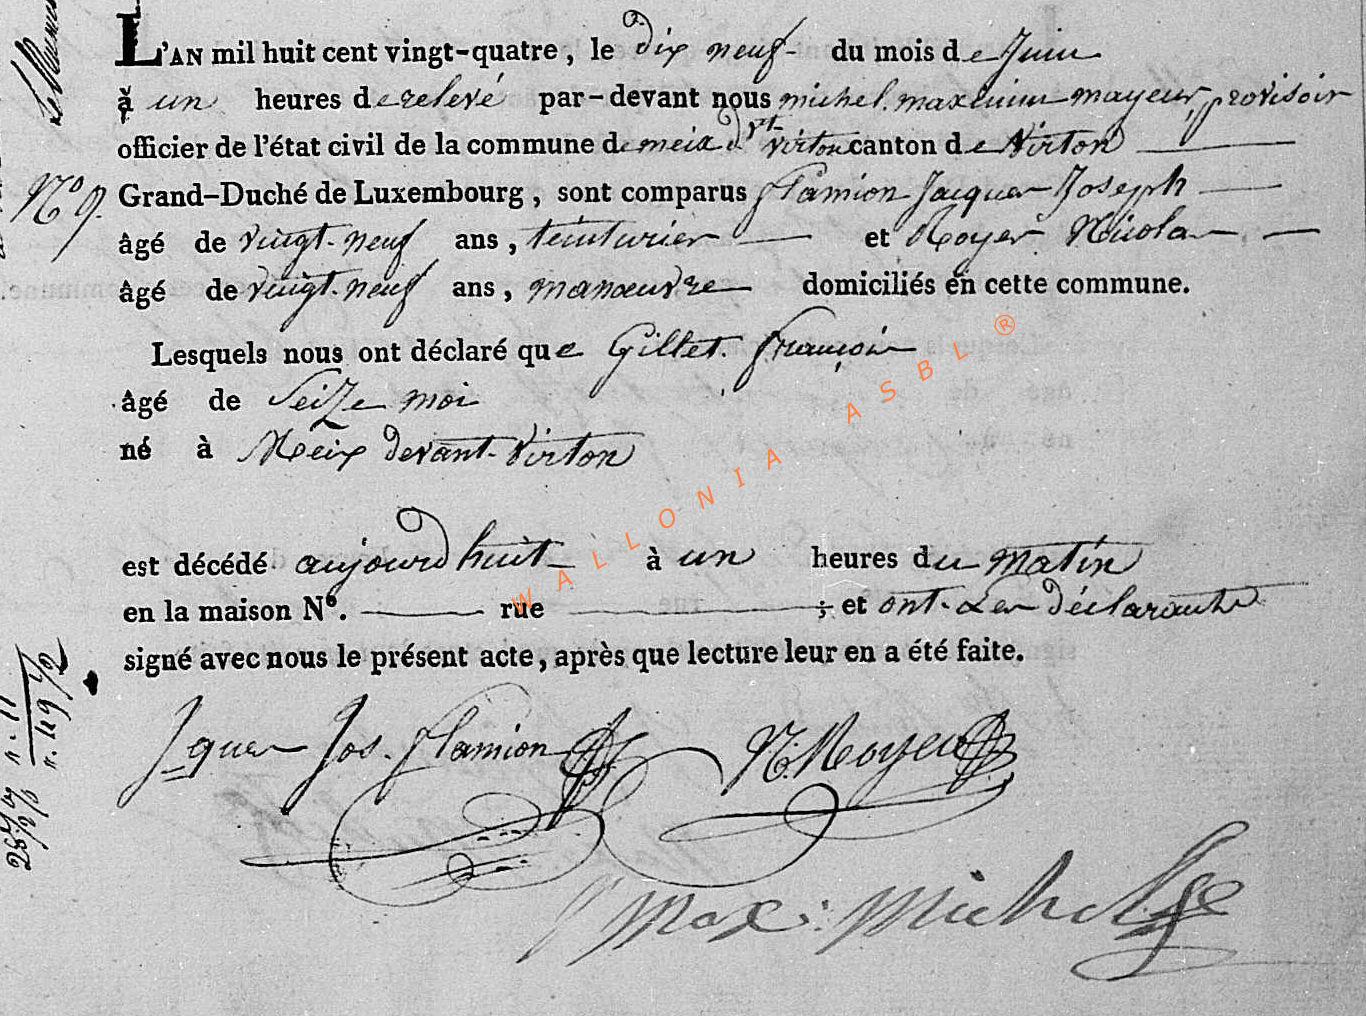 L'AN mil huit cent vingt-quatre, le dix neuf du mois de Juin
à un heures de relevé par-devant nous michel. maximin mayeur, provisoir
officier de l'état civil de la commune de meix dvt virton canton de Virton
N° 9. Grand-Duché de Luxembourg, sont comparus flamion Jacques Joseph
âgé de vingt-neuf ans, teinturier et Royer Nicolas
âgé de vingt-neuf ans, manœuvre domiciliés en cette commune.
Lesquels nous ont déclaré que Giltet. françois
âgé de Seize moi
né à Meix devant-Virton
est décédé aujourd huit à un heures du matin
en la maison N°. rue ; et ont-Les déclarants
signé avec nous le présent acte, après que lecture leur en a été faite.
Jques Jos. flamion N: Royer
Max: Michel
WALLONIA ASBL ®